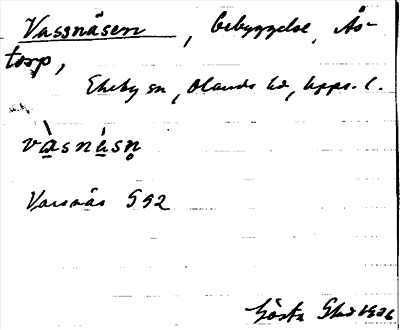 Vassnäsen, bebyggelse, Ås-
torp,
Ekeby sn, Olands hd, Upps. l.
vàsnásn̥
Varsnäs S92
Gösta